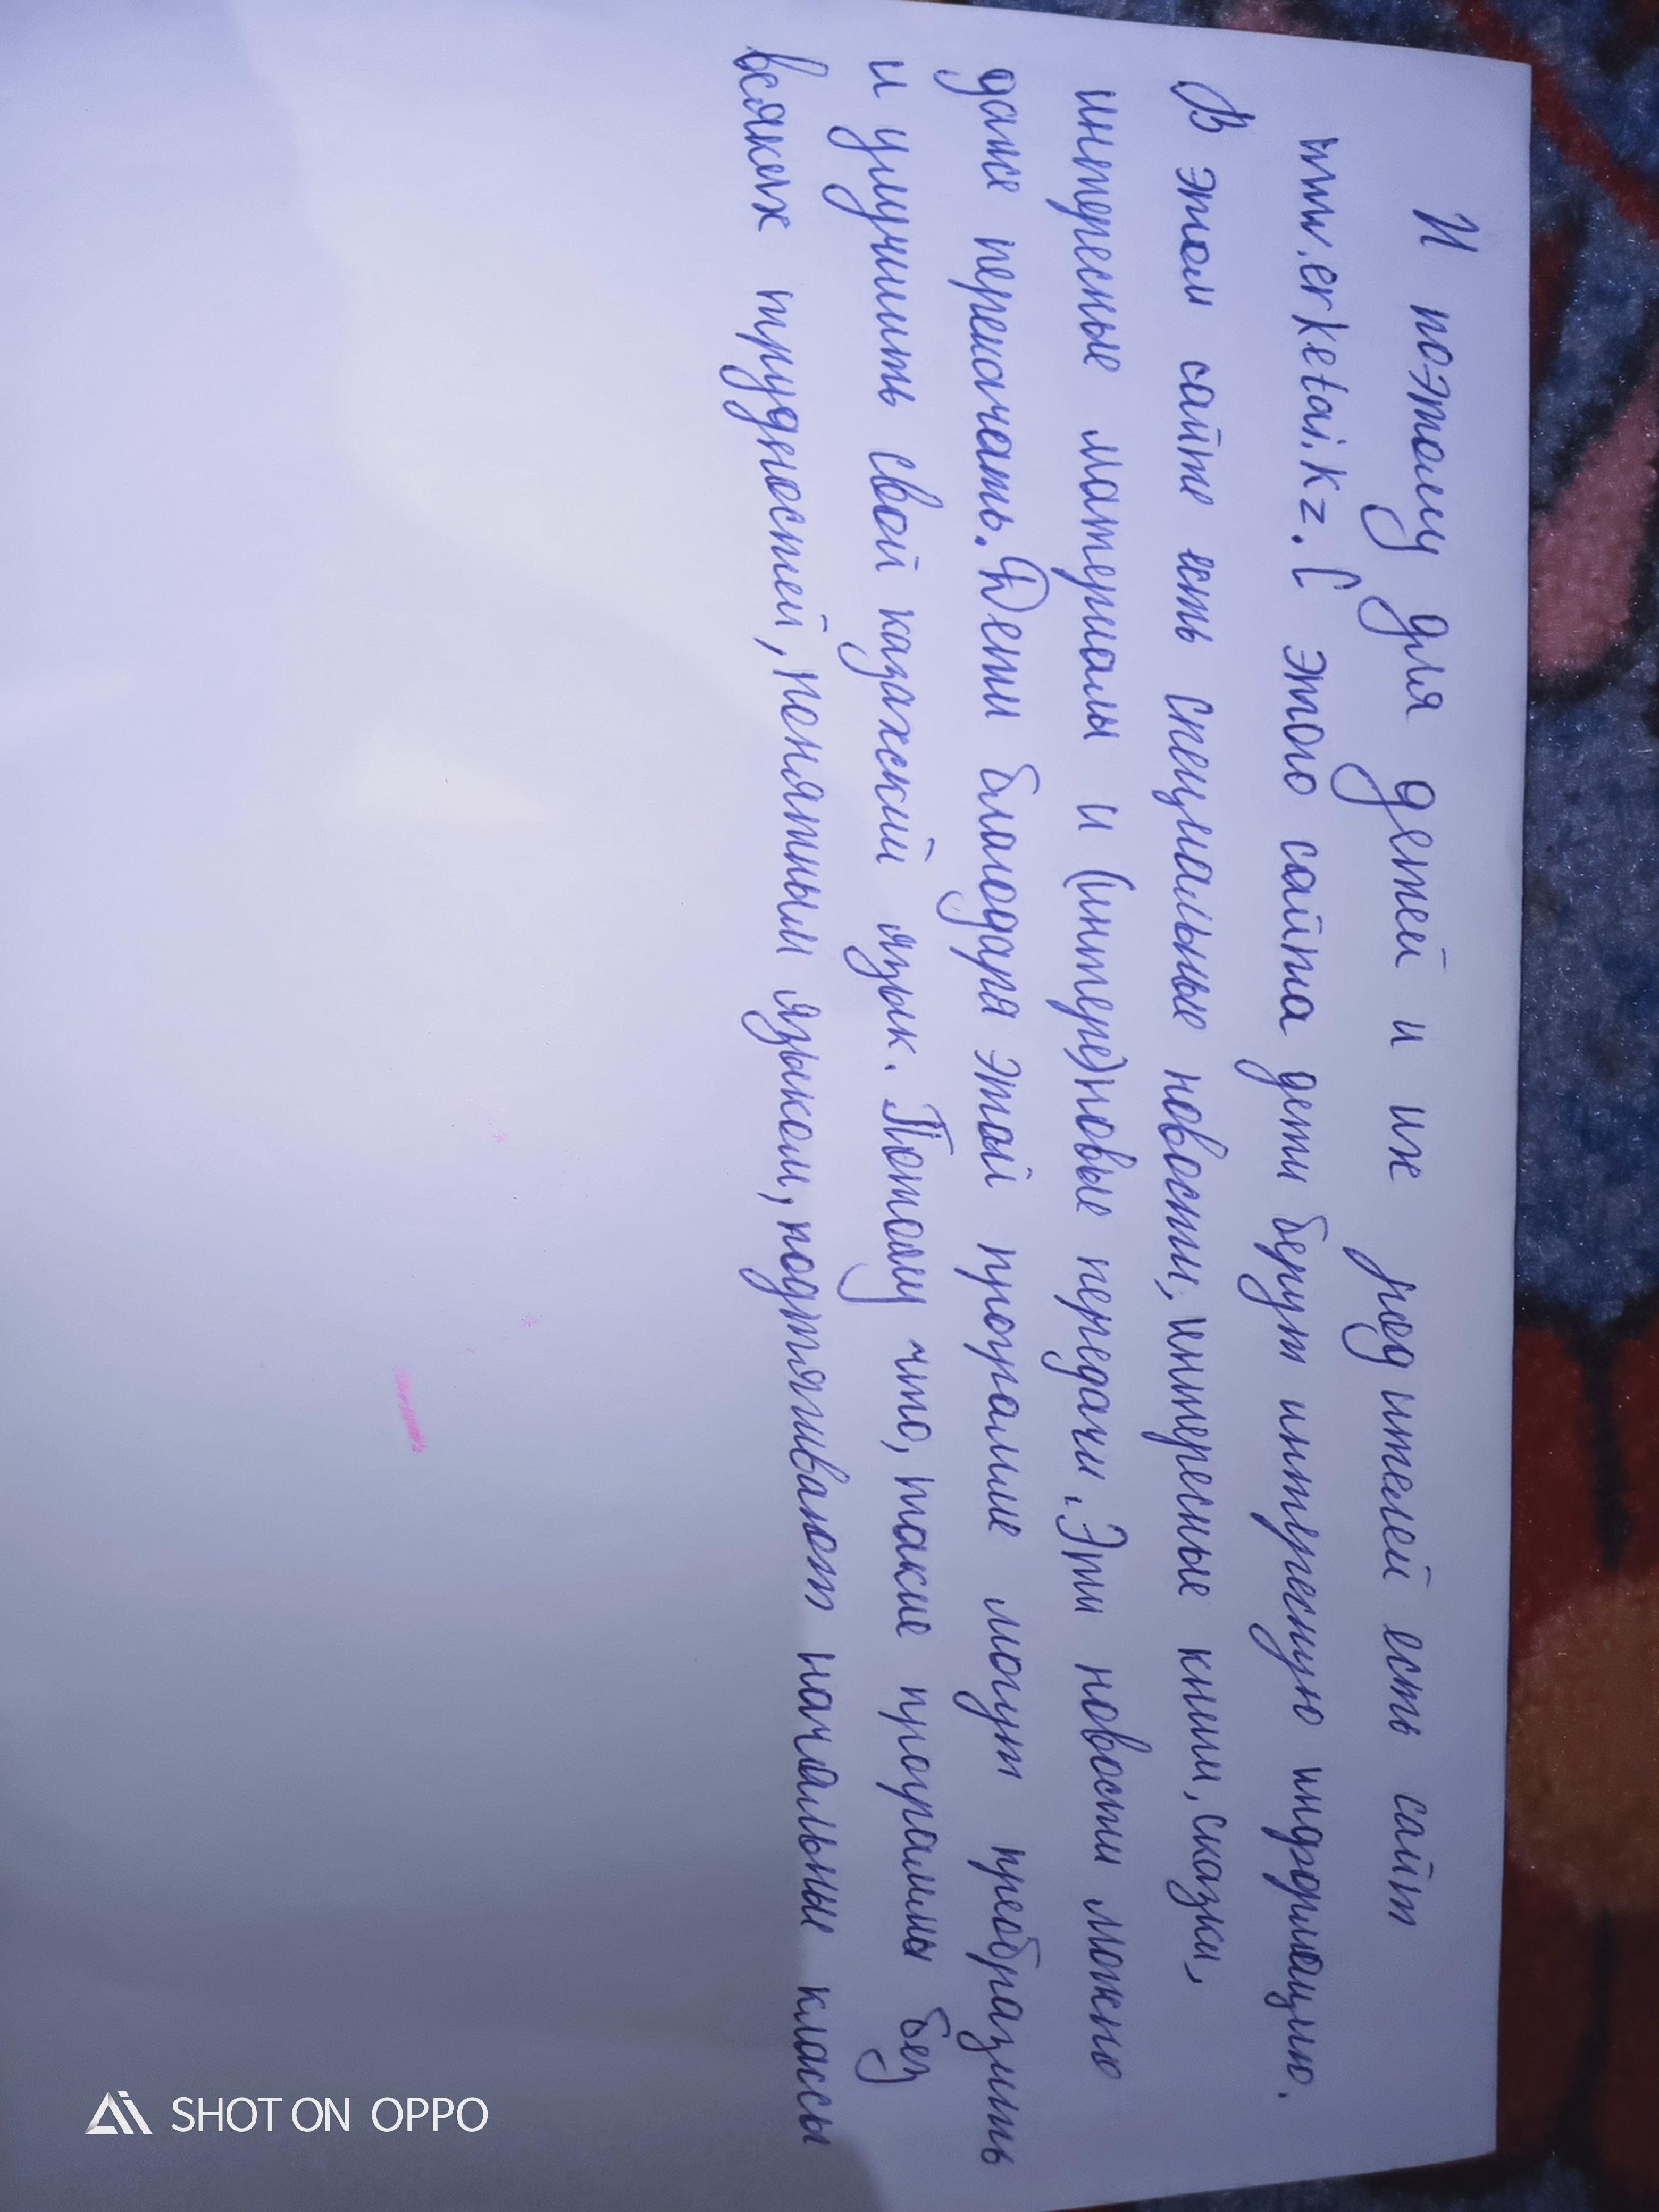 И поэтому для детей и их родителей есть сайт
www.erketai.kz. С этого сайта дети берут интересную информацию.
В этом сайте есть специальные новости, интересные книги, сказки,
интересные материалы и (интере) новые передачи. Эти новости можно
даже перекачать. Дети благодаря этой программе могут преобразить
и улучшить свой казахский язык. Потому что, такие программы без
всяких трудностей, понятным языком, подтягивают начальные классы
SHOT ON OPPO